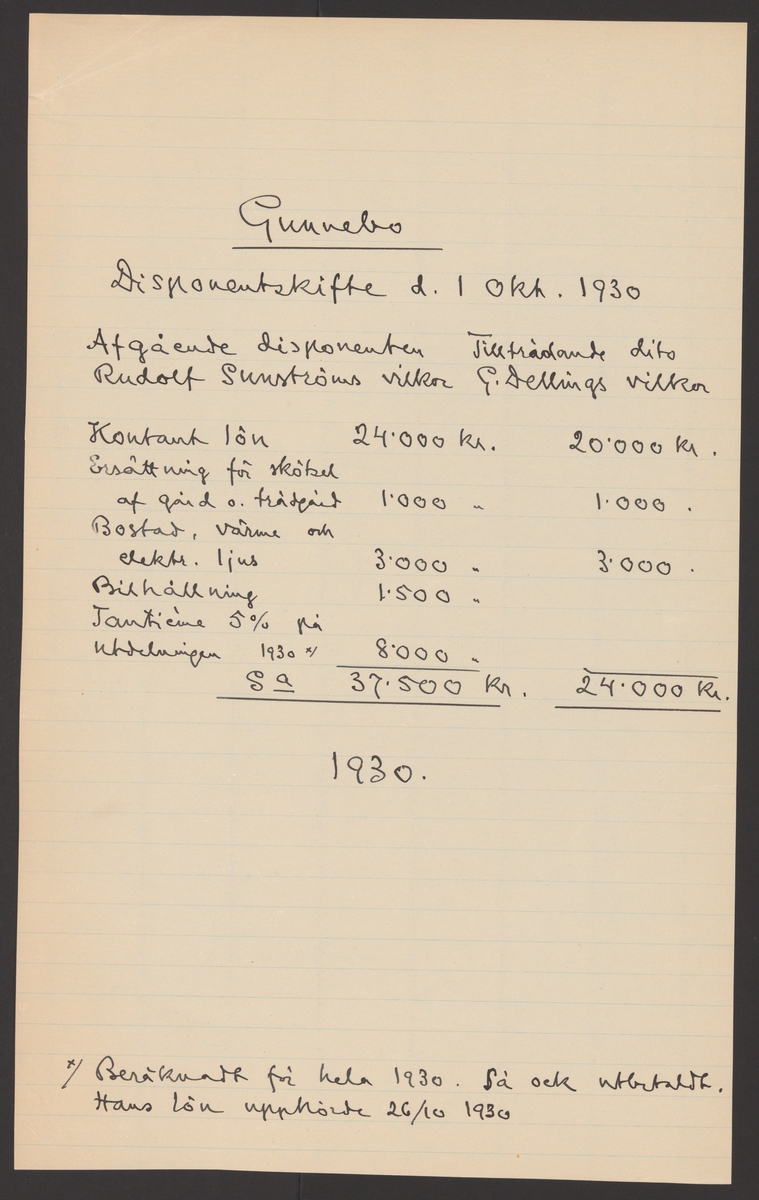 Gunnebo
Disponentskifte d. 1 Okt. 1930
Afgående disponenten Tillträdande dito
Rudolf Sunströms vilkor G. Dellings vilkor
Kontant lön 24·000 kr. 20·000 kr.
Ersättning för skötsel
af gård o. trädgård 1·000 " 1·000 .
Bostad, värme och
elektr. ljus 3·000 " 3·000 .
Bilhållning 1·500 "
Tantième 5% på
utdelningen 1930 x/ 8·000 "
Sa 37·500 kr. 24·000 kr.
1930.
x/ Beräknadt för hela 1930. Så ock utbetaldt.
Hans lön upphörde 26/10 1930